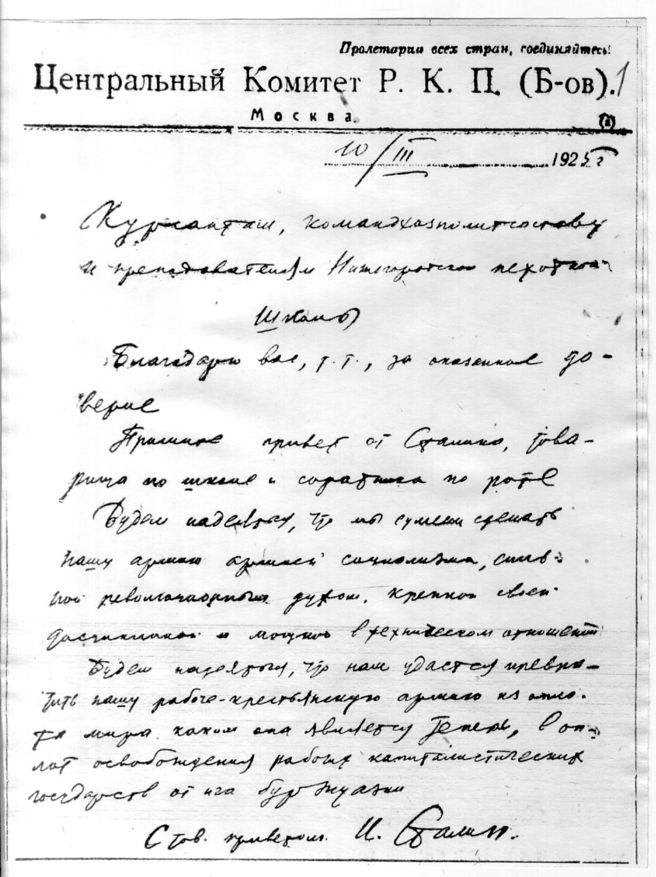 Пролетарии всех стран, соединяйтесь!
Центральный Комитет Р. К. П. (Б-ов). 1
Москва
10/III 1925 г
Курсантам, командхозполитсоставу
и преподавателям Нижегородской пехотной
школы
Благодарю вас, т.т., за оказанное до-
верие
Примите привет от Сталина, това-
рища по школе и соратника по роте
Будем надеяться, что мы сумеем сделать
нашу армию армией социализма, силь-
ной революционным духом, крепкой своей
дисциплиной и мощной в техническом отношении
Будем надеяться, что нам удастся превра-
тить нашу рабоче-крестьянскую армию из опло-
та мира каким она является теперь, в оп-
лот освобождения рабочих капиталистических
государств от ига буржуазии
С тов. приветом. И. Сталин.